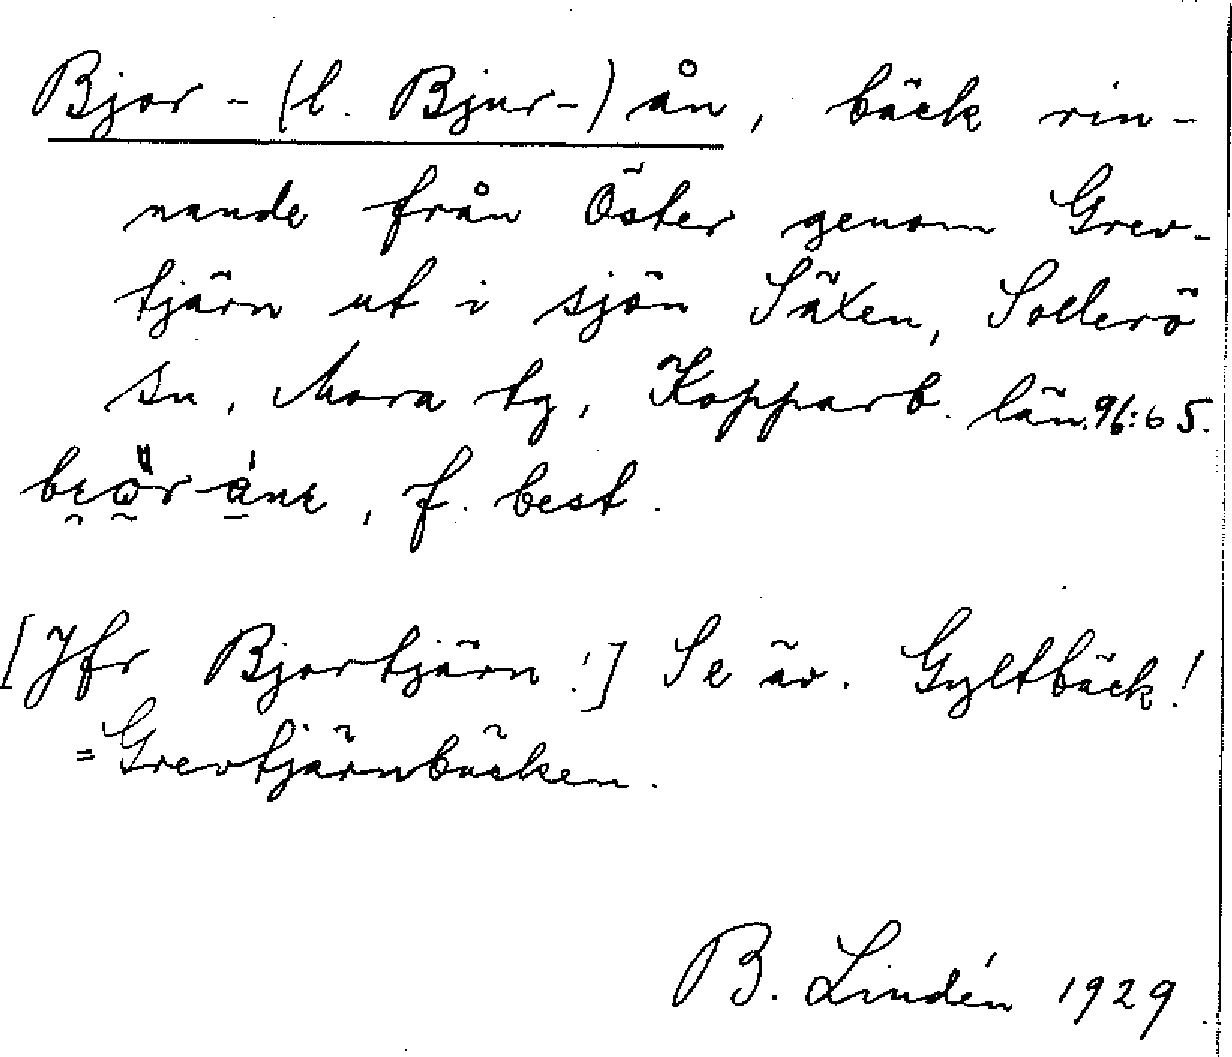 Bjor- (l. Bjur-) ån, bäck rin-
nande från Öster genom Grev-
tjärn ut i sjön Säxen, Sollerö
sn, Mora tg, Kopparb. län. 96:65.
, f. best.
[Jfr Bjortjärn!] Se äv. Gyltbäck!
=Grevtjärnbäcken.
B. Lindén 1929